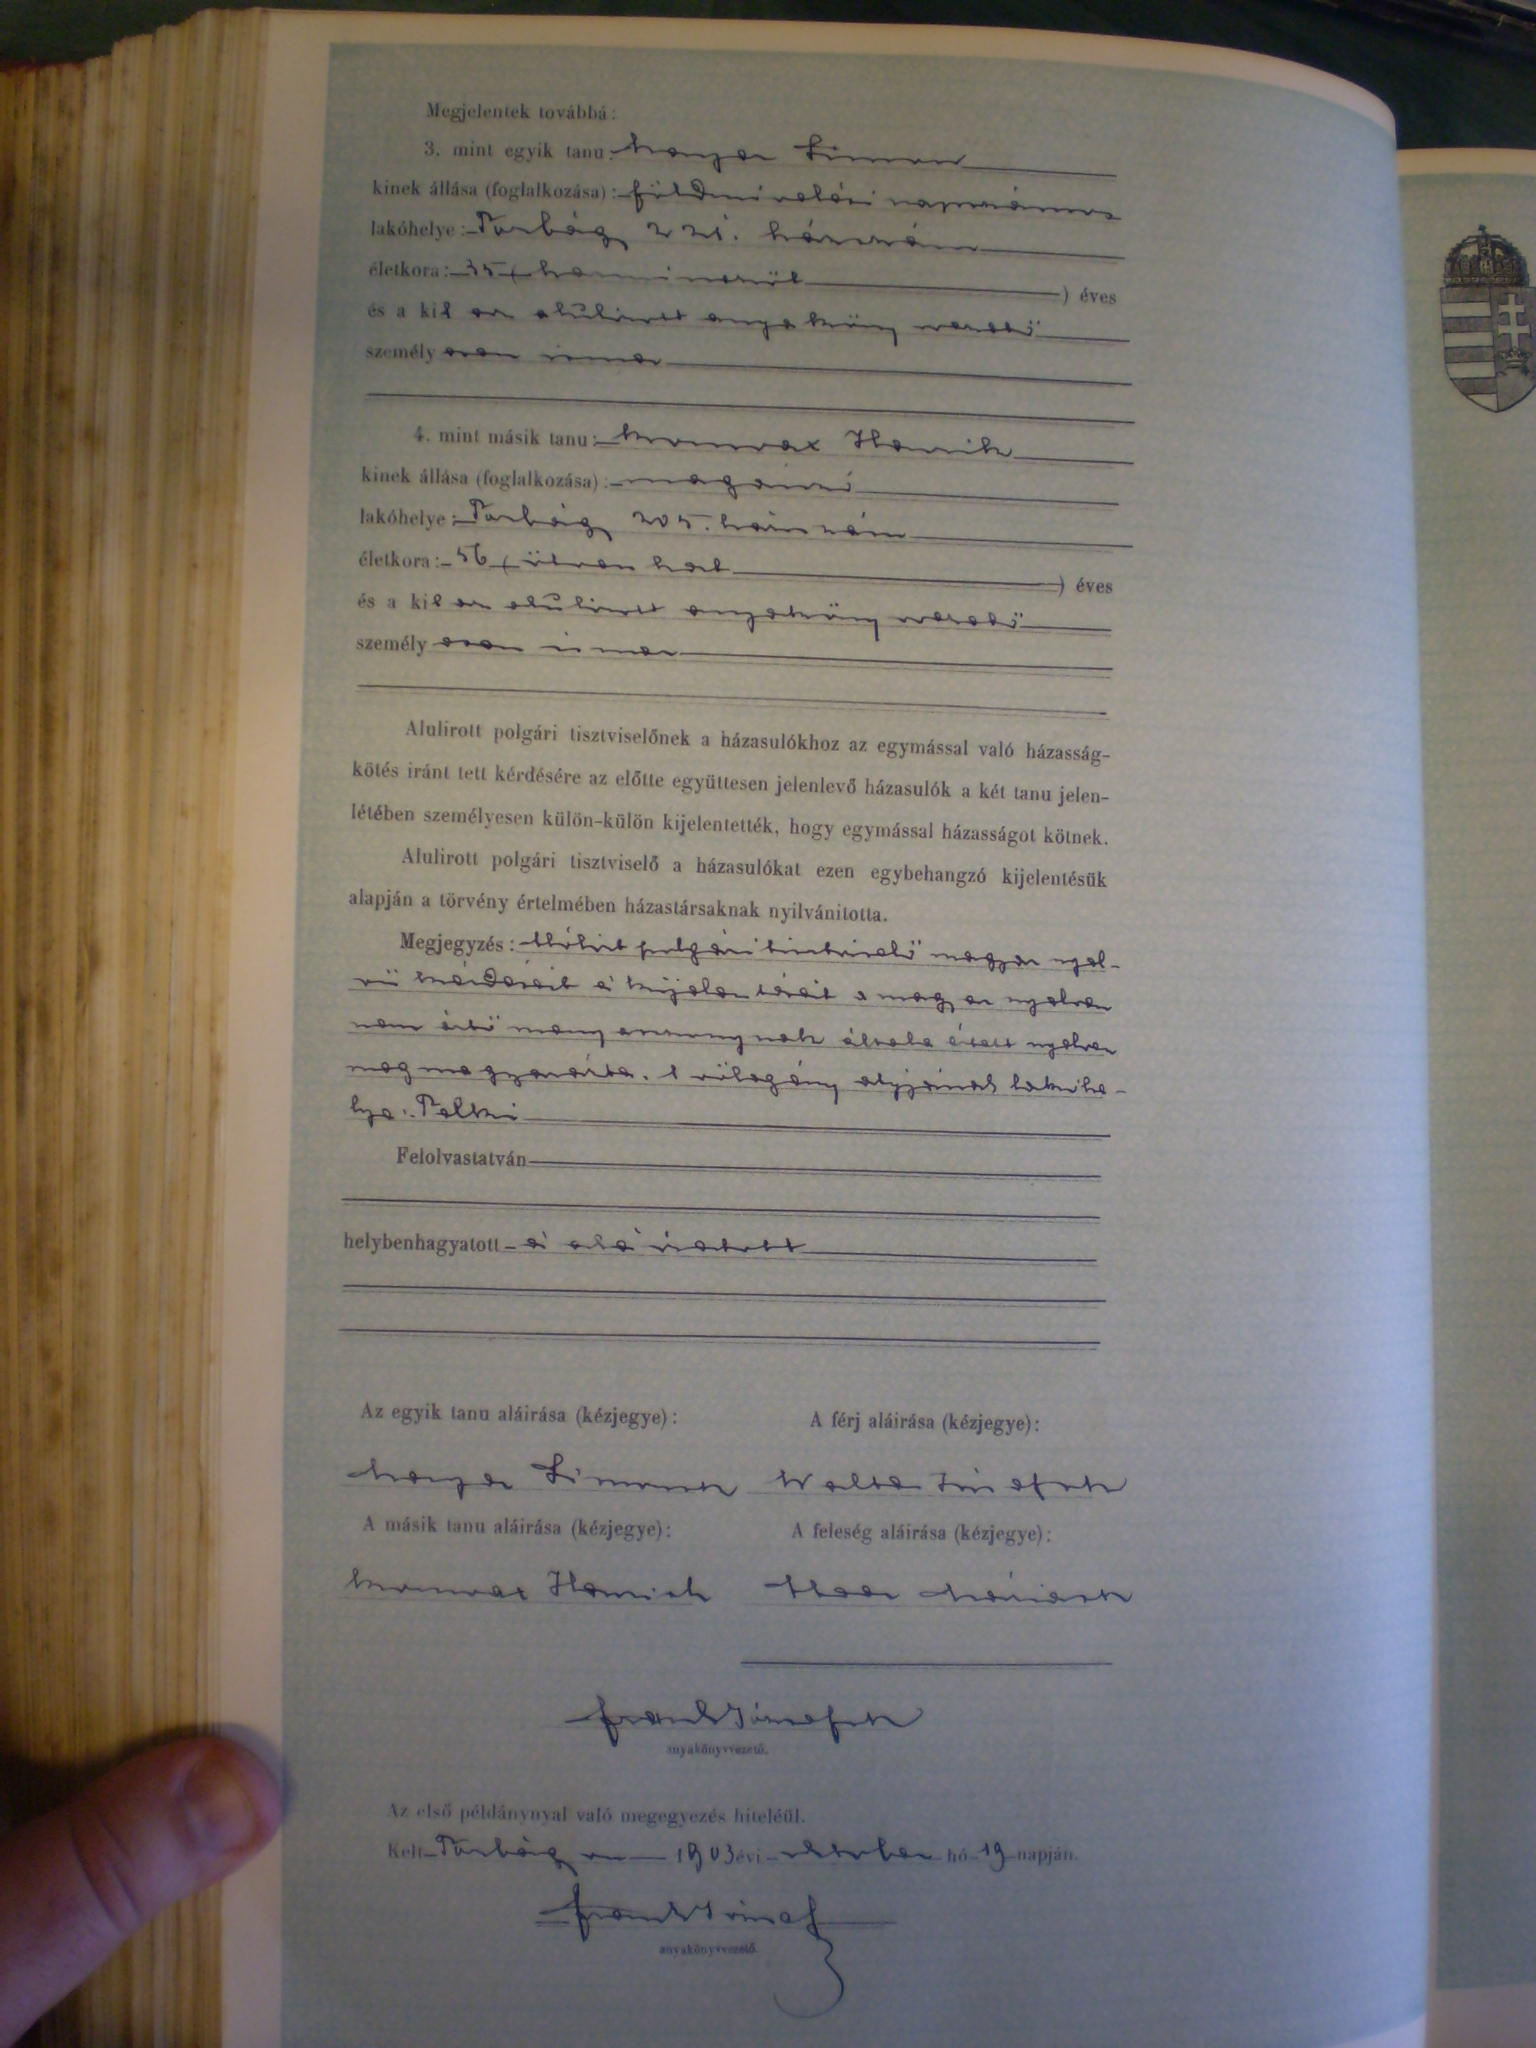 Megjelentek továbbá:
3. mint egyik tanu: Mayer Simon
kinek állása (foglalkozása): földmivelési napszámos
lakóhelye: Torbág 221. házszám
életkora: 35 (harminczöt) éves
és a kit az alulirott anyakönyvvezető
személyesen ismer
4. mint másik tanu: Henrik
kinek állása (foglalkozása): magánzó
lakóhelye: Torbág 205. házszám
életkora: 56 (ötvenhat) éves
és a kit az alulirott anyakönyvvezető
személyesen ismer
Alulirott polgári tisztviselőnek a házasulókhoz az egymással való házasság-
kötés iránt tett kérdésére az előtte együttesen jelenlevő házasulók a két tanu jelen-
létében személyesen külön-külön kijelentették, hogy egymással házasságot kötnek.
Alulirott polgári tisztviselő a házasulókat ezen egybehangzó kijelentésük
alapján a törvény értelmében házastársaknak nyilvánitotta.
Megjegyzés: Alólirt polgári tisztviselő magyar nyel-
vü kérdéseit és kijelentéseit a magyar nyelven
nem értő menyasszonynak általa értett nyelven
megmagyarázta. A vőlegény atyjának lakhe-
lye: Telki
Felolvastatván
helybenhagyatott és aláiratott
Az egyik tanu aláirása (kézjegye): A férj aláirása (kézjegye):
Mayer Simon sk József sk
A másik tanu aláirása (kézjegye): A feleség aláirása (kézjegye):
Henrik sk Mária sk
Frank József sk
anyakönyvvezető.
Az első példánynyal való megegyezés hiteléül.
Kelt Torbágyon 1903 évi október hó 19 napján.
Frank József
anyakönyvvezető.